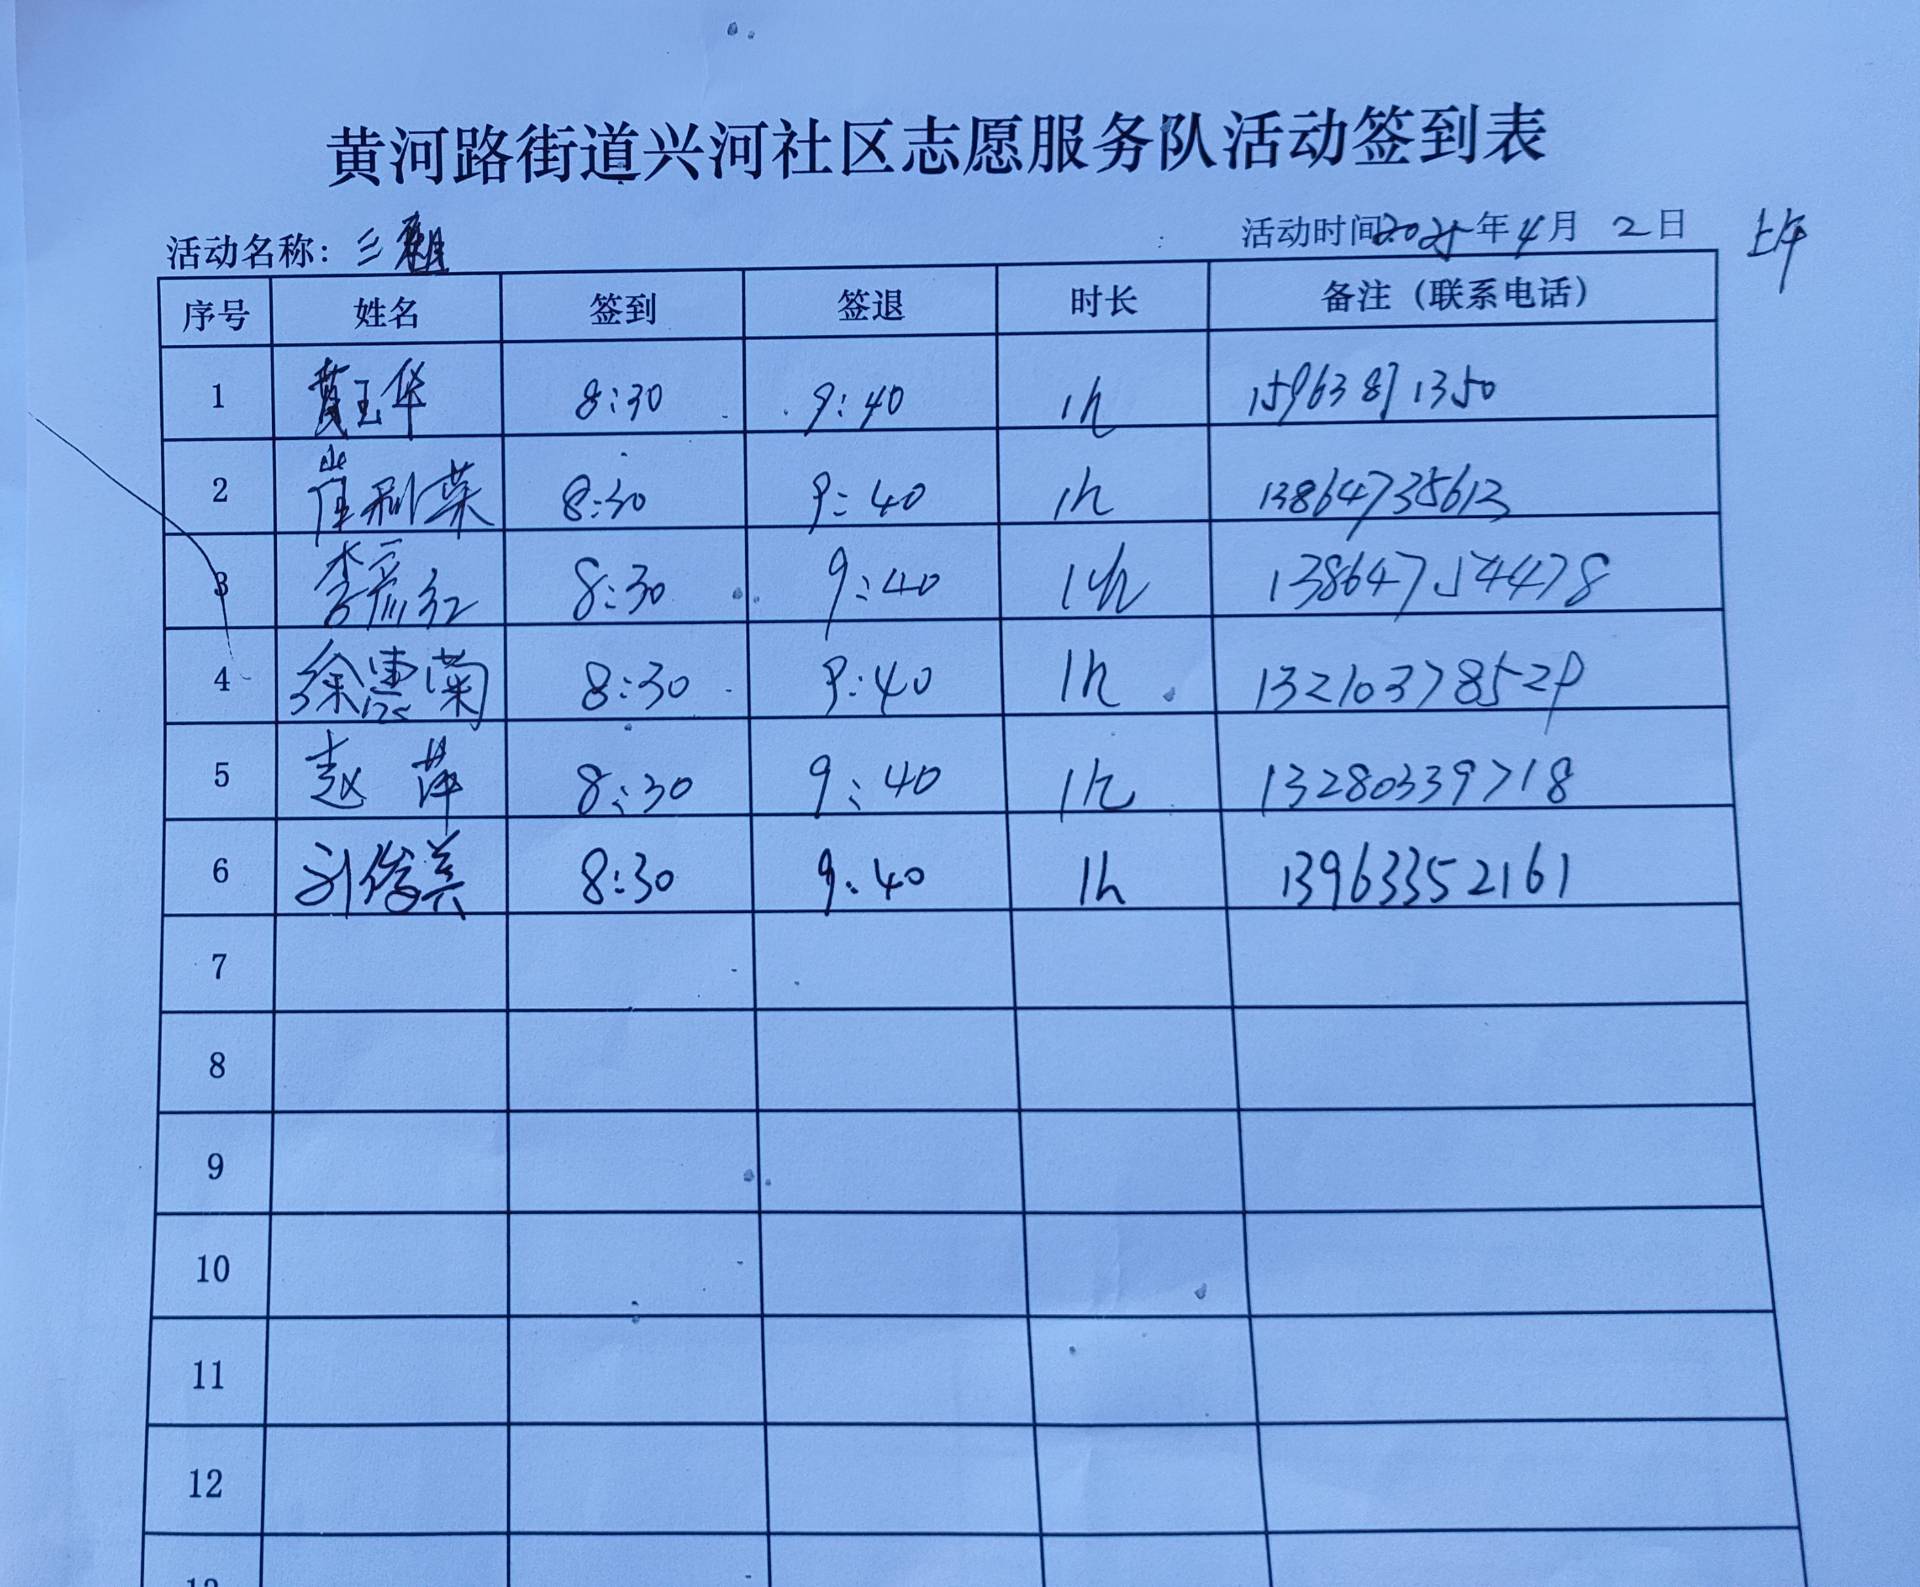 黄河路街道兴河社区志愿服务队活动签到表
活动名称: 三組 活动时间2025年4月2日 上午
序号 姓名 签到 签退 时长 备注（联系电话）
1 黄玉华 8:30 9:40 1h 15963871350
2 崔利菜 8:30 9:40 1h 13864735613
3 李彦红 8:30 9:40 1h 13864754478
4 徐惠菊 8:30 9:40 1h 13210378529
5 赵萍 8:30 9:40 1h 13280339718
6 刘俊美 8:30 9:40 1h 13963352161
7
8
9
10
11
12